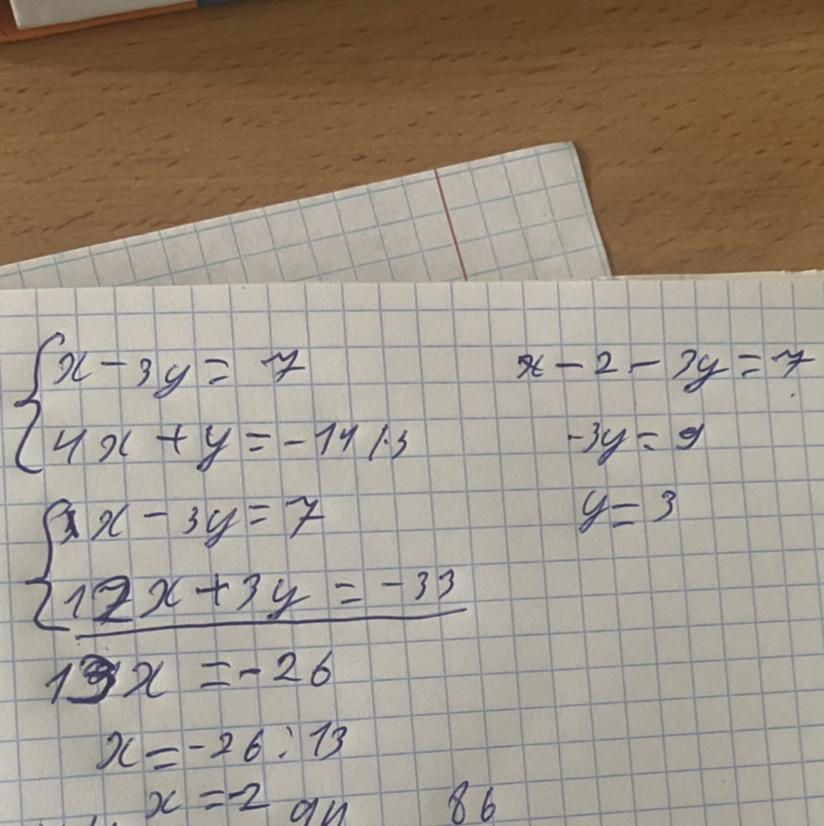 x - 3y = 7
4x + y = -11 /·3
1x - 3y = 7
12x + 3y = -33
13x = -26
x = -26 : 13
x = -2
x - 2 - 3y = 7
-3y = 9
y = 3
86